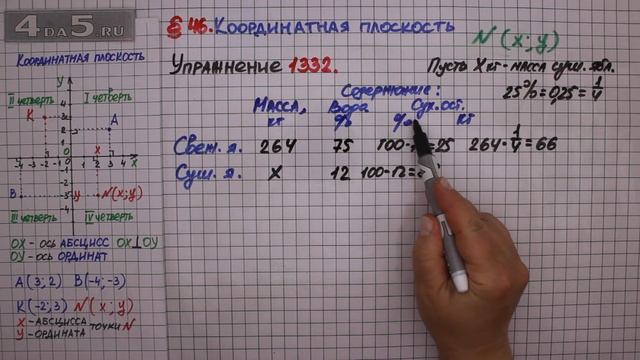 4DA5.RU
§ 46. КООРДИНАТНАЯ ПЛОСКОСТЬ
N(x; y)
КООРДИНАТНАЯ ПЛОСКОСТЬ
УПРАЖНЕНИЕ 1332.
Пусть X кг - масса суш. ябл.
25% = 0,25 = 1/4
Содержание:
МАССА, Вода Сух. ост.
кг % % кг
Свеж. я. 264 75 100- =25 264 · 1/4 = 66
Суш. я. X 12 100-12=
y
II ЧЕТВЕРТЬ I ЧЕТВЕРТЬ
K
A
x
B
y N(x; y)
III ЧЕТВЕРТЬ IV ЧЕТВЕРТЬ
OX - ось АБСЦИСС OX⊥OY
OY - ось ОРДИНАТ
A(3; 2) B(-4; -3)
K(-2; 3) N(x; y)
X - АБСЦИССА
ТОЧКИ N
У - ОРДИНАТА